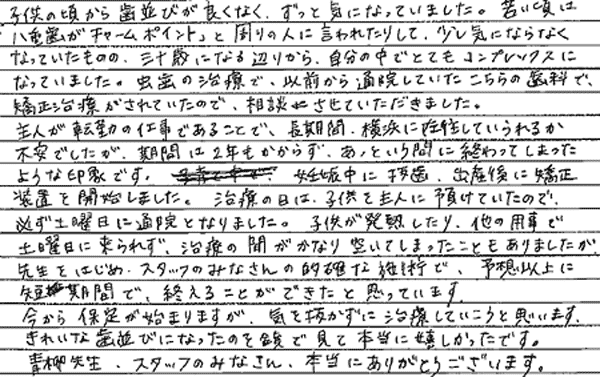 子供の頃から歯並びが良くなく、ずっと気になっていました。若い頃は
八重歯が「チャームポイント」と周りの人に言われたりして、少し気にならなく
なっていたものの、三十歳になる辺りから、自分の中でとてもコンプレックスに
なっていました。虫歯の治療で、以前から通院していたこちらの歯科で、
矯正治療がされていたので、相談させていただきました。
主人が転勤の仕事であることで、長期間、横浜に在住していられるか
不安でしたが、期間は2年もかからず、あっという間に終わってしまった
ような印象です。妊娠中に抜歯、出産後に矯正
装置を開始しました。治療の日は、子供を主人に預けていたので、
必ず土曜日に通院となりました。子供が発熱したり、他の用事で
土曜日に来られず、治療の間がかなり空いてしまったこともありましたが、
先生をはじめ、スタッフのみなさんの的確な施術で、予想以上に
短期間で、終えることができたと思っています
今から保定が始まりますが、気を抜かずに治療していこうと思います。
きれいな歯並びになったのを鏡で見て本当に嬉しかったです。
青柳先生、スタッフのみなさん、本当にありがとうございます。